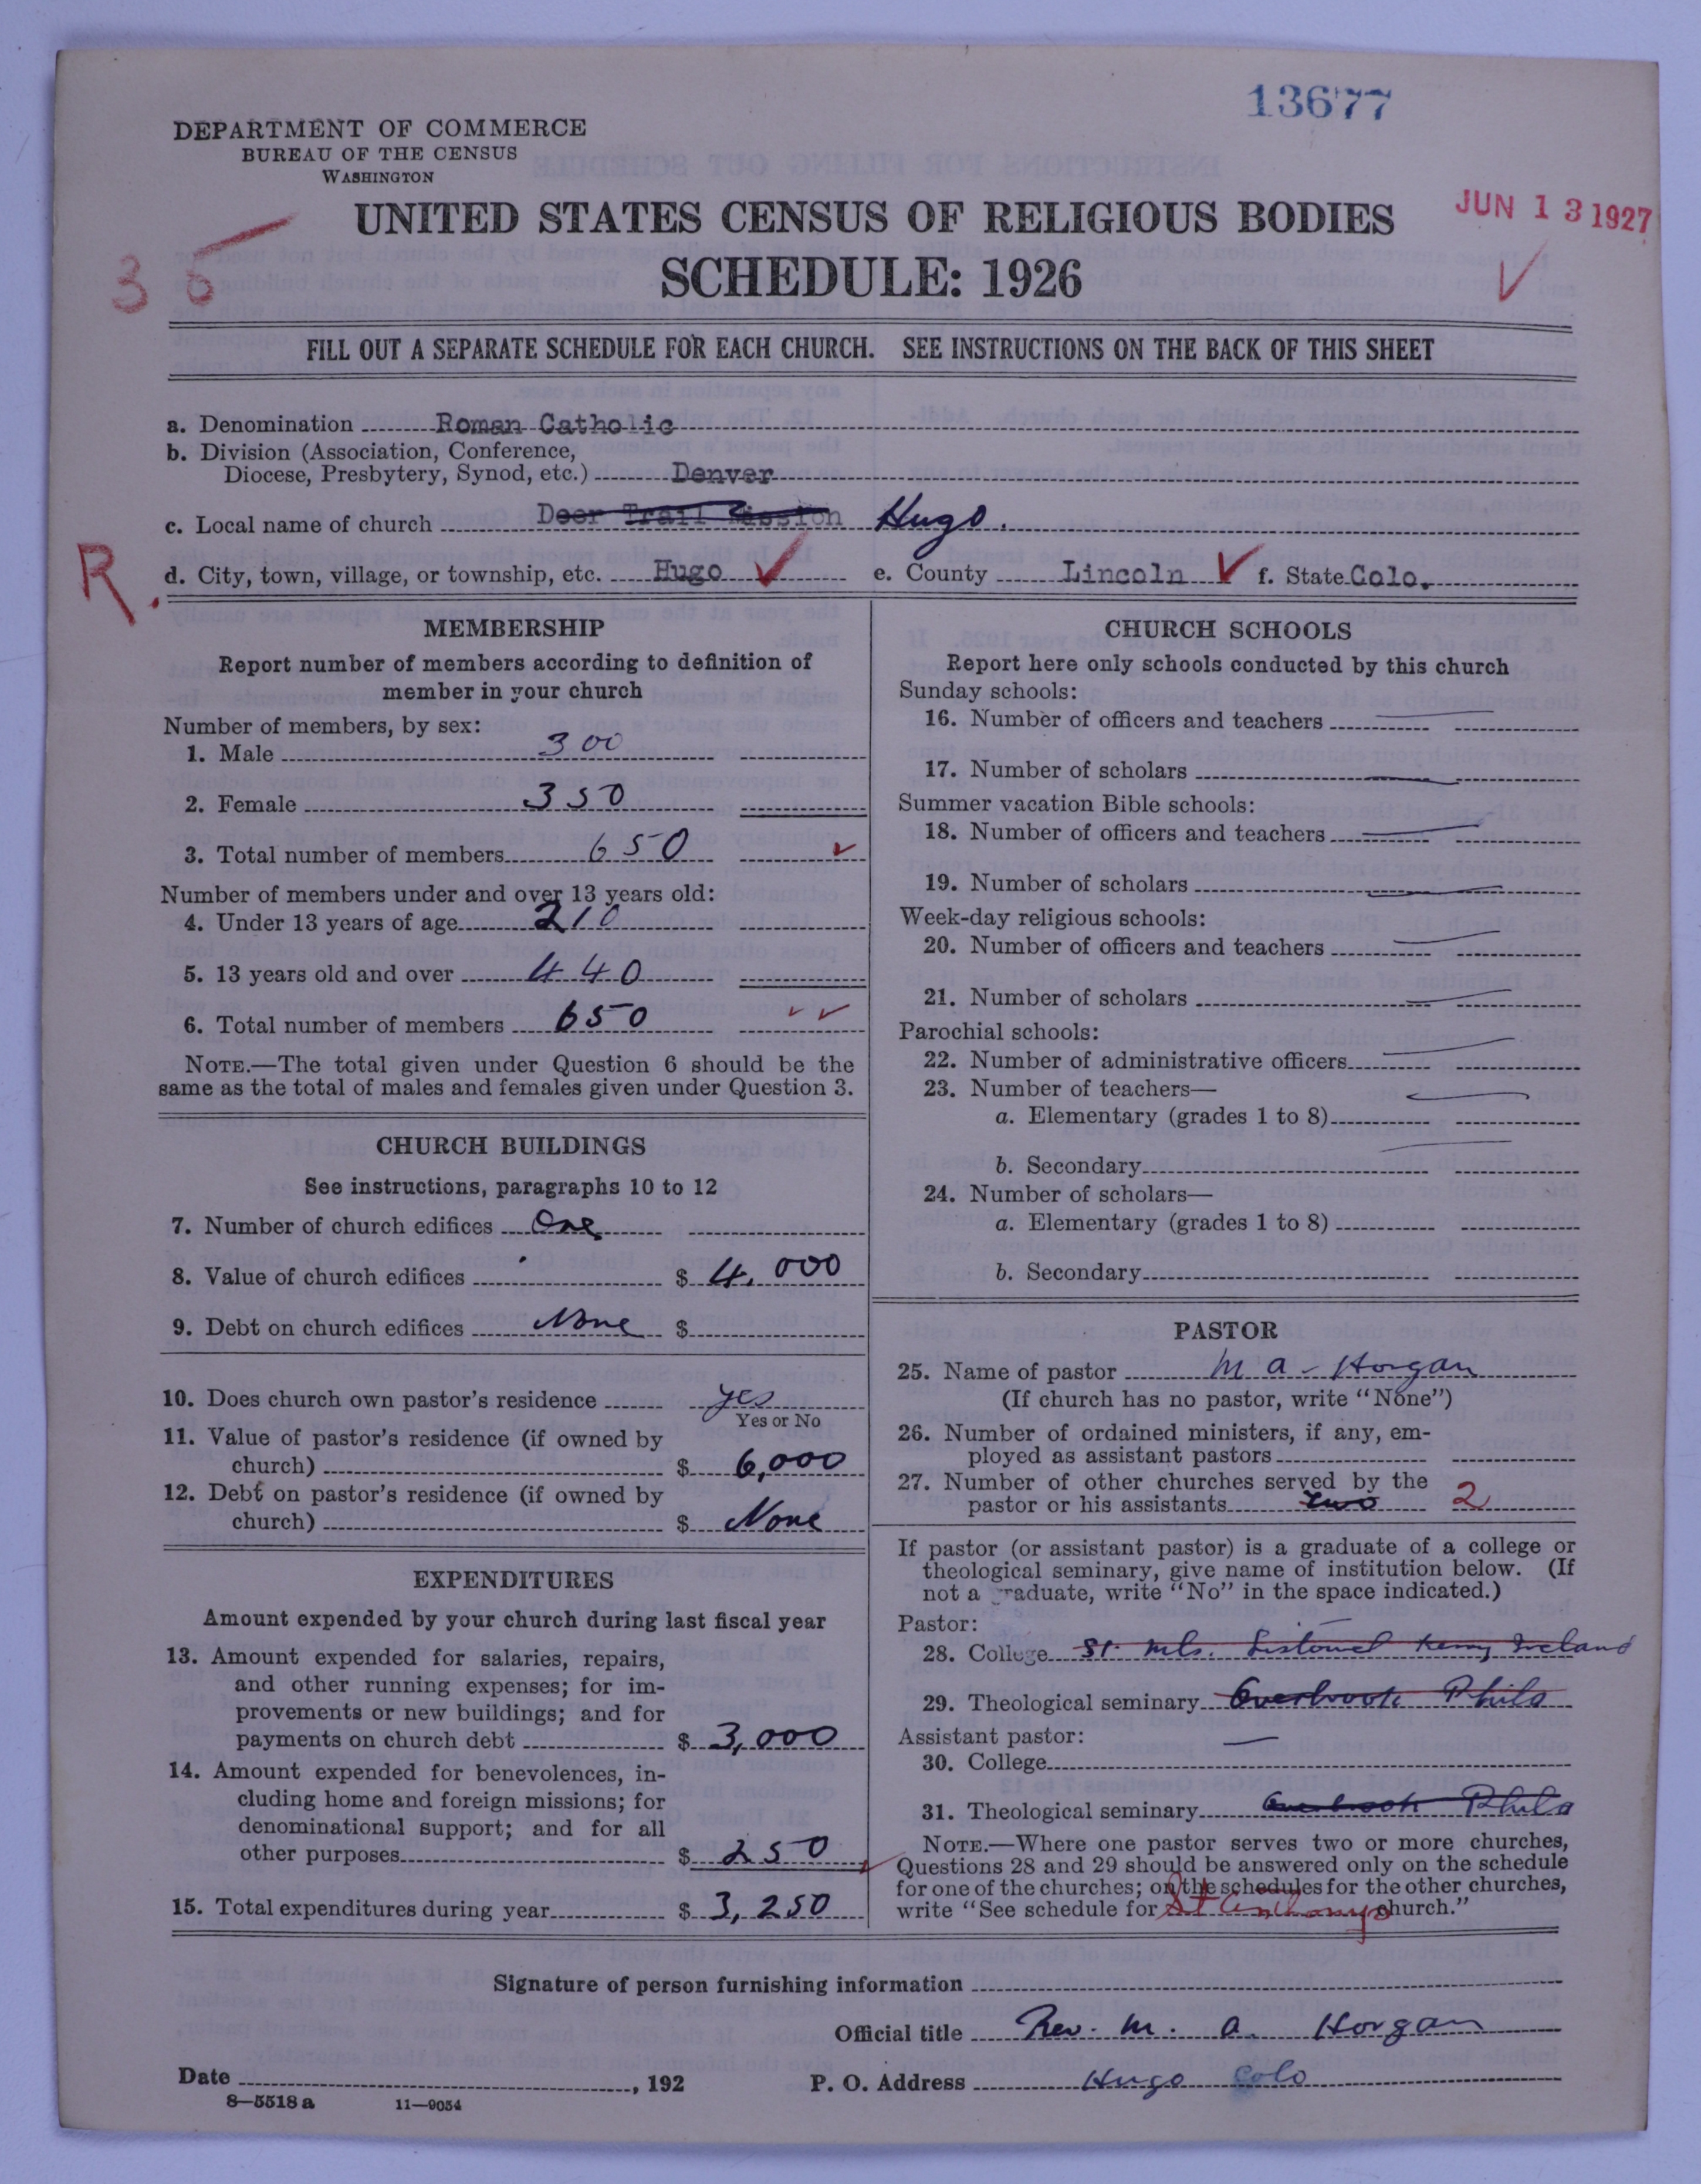 13677
DEPARTMENT OF COMMERCE
BUREAU OF THE CENSUS
WASHINGTON
UNITED STATES CENSUS OF RELIGIOUS BODIES
JUN 13 1927
SCHEDULE: 1926
FILL OUT A SEPARATE SCHEDULE FOR EACH CHURCH. SEE INSTRUCTIONS ON THE BACK OF THIS SHEET
a. Denomination Roman Catholic
b. Division (Association, Conference,
Diocese, Presbytery, Synod, etc.) Denver
c. Local name of church Deer Trail Mission Hugo.
R.
d. City, town, village, or township, etc. Hugo e. County Lincoln f. State Colo.
MEMBERSHIP
Report number of members according to definition of
member in your church
Number of members, by sex:
1. Male 300
2. Female 350
3. Total number of members 650
Number of members under and over 13 years old:
4. Under 13 years of age 210
5. 13 years old and over 440
6. Total number of members 650
NOTE.—The total given under Question 6 should be the
same as the total of males and females given under Question 3.
CHURCH BUILDINGS
See instructions, paragraphs 10 to 12
7. Number of church edifices One
8. Value of church edifices $ 4,000
9. Debt on church edifices None $
10. Does church own pastor's residence yes
Yes or No
11. Value of pastor's residence (if owned by
church) $ 6,000
12. Debt on pastor's residence (if owned by
church) $ None
EXPENDITURES
Amount expended by your church during last fiscal year
13. Amount expended for salaries, repairs,
and other running expenses; for im-
provements or new buildings; and for
payments on church debt $ 3,000
14. Amount expended for benevolences, in-
cluding home and foreign missions; for
denominational support; and for all
other purposes $ 250
15. Total expenditures during year $ 3,250
CHURCH SCHOOLS
Report here only schools conducted by this church
Sunday schools:
16. Number of officers and teachers
17. Number of scholars
Summer vacation Bible schools:
18. Number of officers and teachers
19. Number of scholars
Week-day religious schools:
20. Number of officers and teachers
21. Number of scholars
Parochial schools:
22. Number of administrative officers
23. Number of teachers—
a. Elementary (grades 1 to 8)
b. Secondary
24. Number of scholars—
a. Elementary (grades 1 to 8)
b. Secondary
PASTOR
25. Name of pastor M A - Horgan
(If church has no pastor, write "None")
26. Number of ordained ministers, if any, em-
ployed as assistant pastors
27. Number of other churches served by the
pastor or his assistants two 2
If pastor (or assistant pastor) is a graduate of a college or
theological seminary, give name of institution below. (If
not a graduate, write "No" in the space indicated.)
Pastor:
28. College St. Mls. Listowel Kerry Ireland
29. Theological seminary Overbrook Phila
Assistant pastor:
30. College
31. Theological seminary Overbrook Phila
NOTE.—Where one pastor serves two or more churches,
Questions 28 and 29 should be answered only on the schedule
for one of the churches; on the schedules for the other churches,
write "See schedule for St Anthonys church."
Signature of person furnishing information
Official title Rev. M. A. Horgan
Date , 192 P. O. Address Hugo Colo
8—5518 a 11—9054